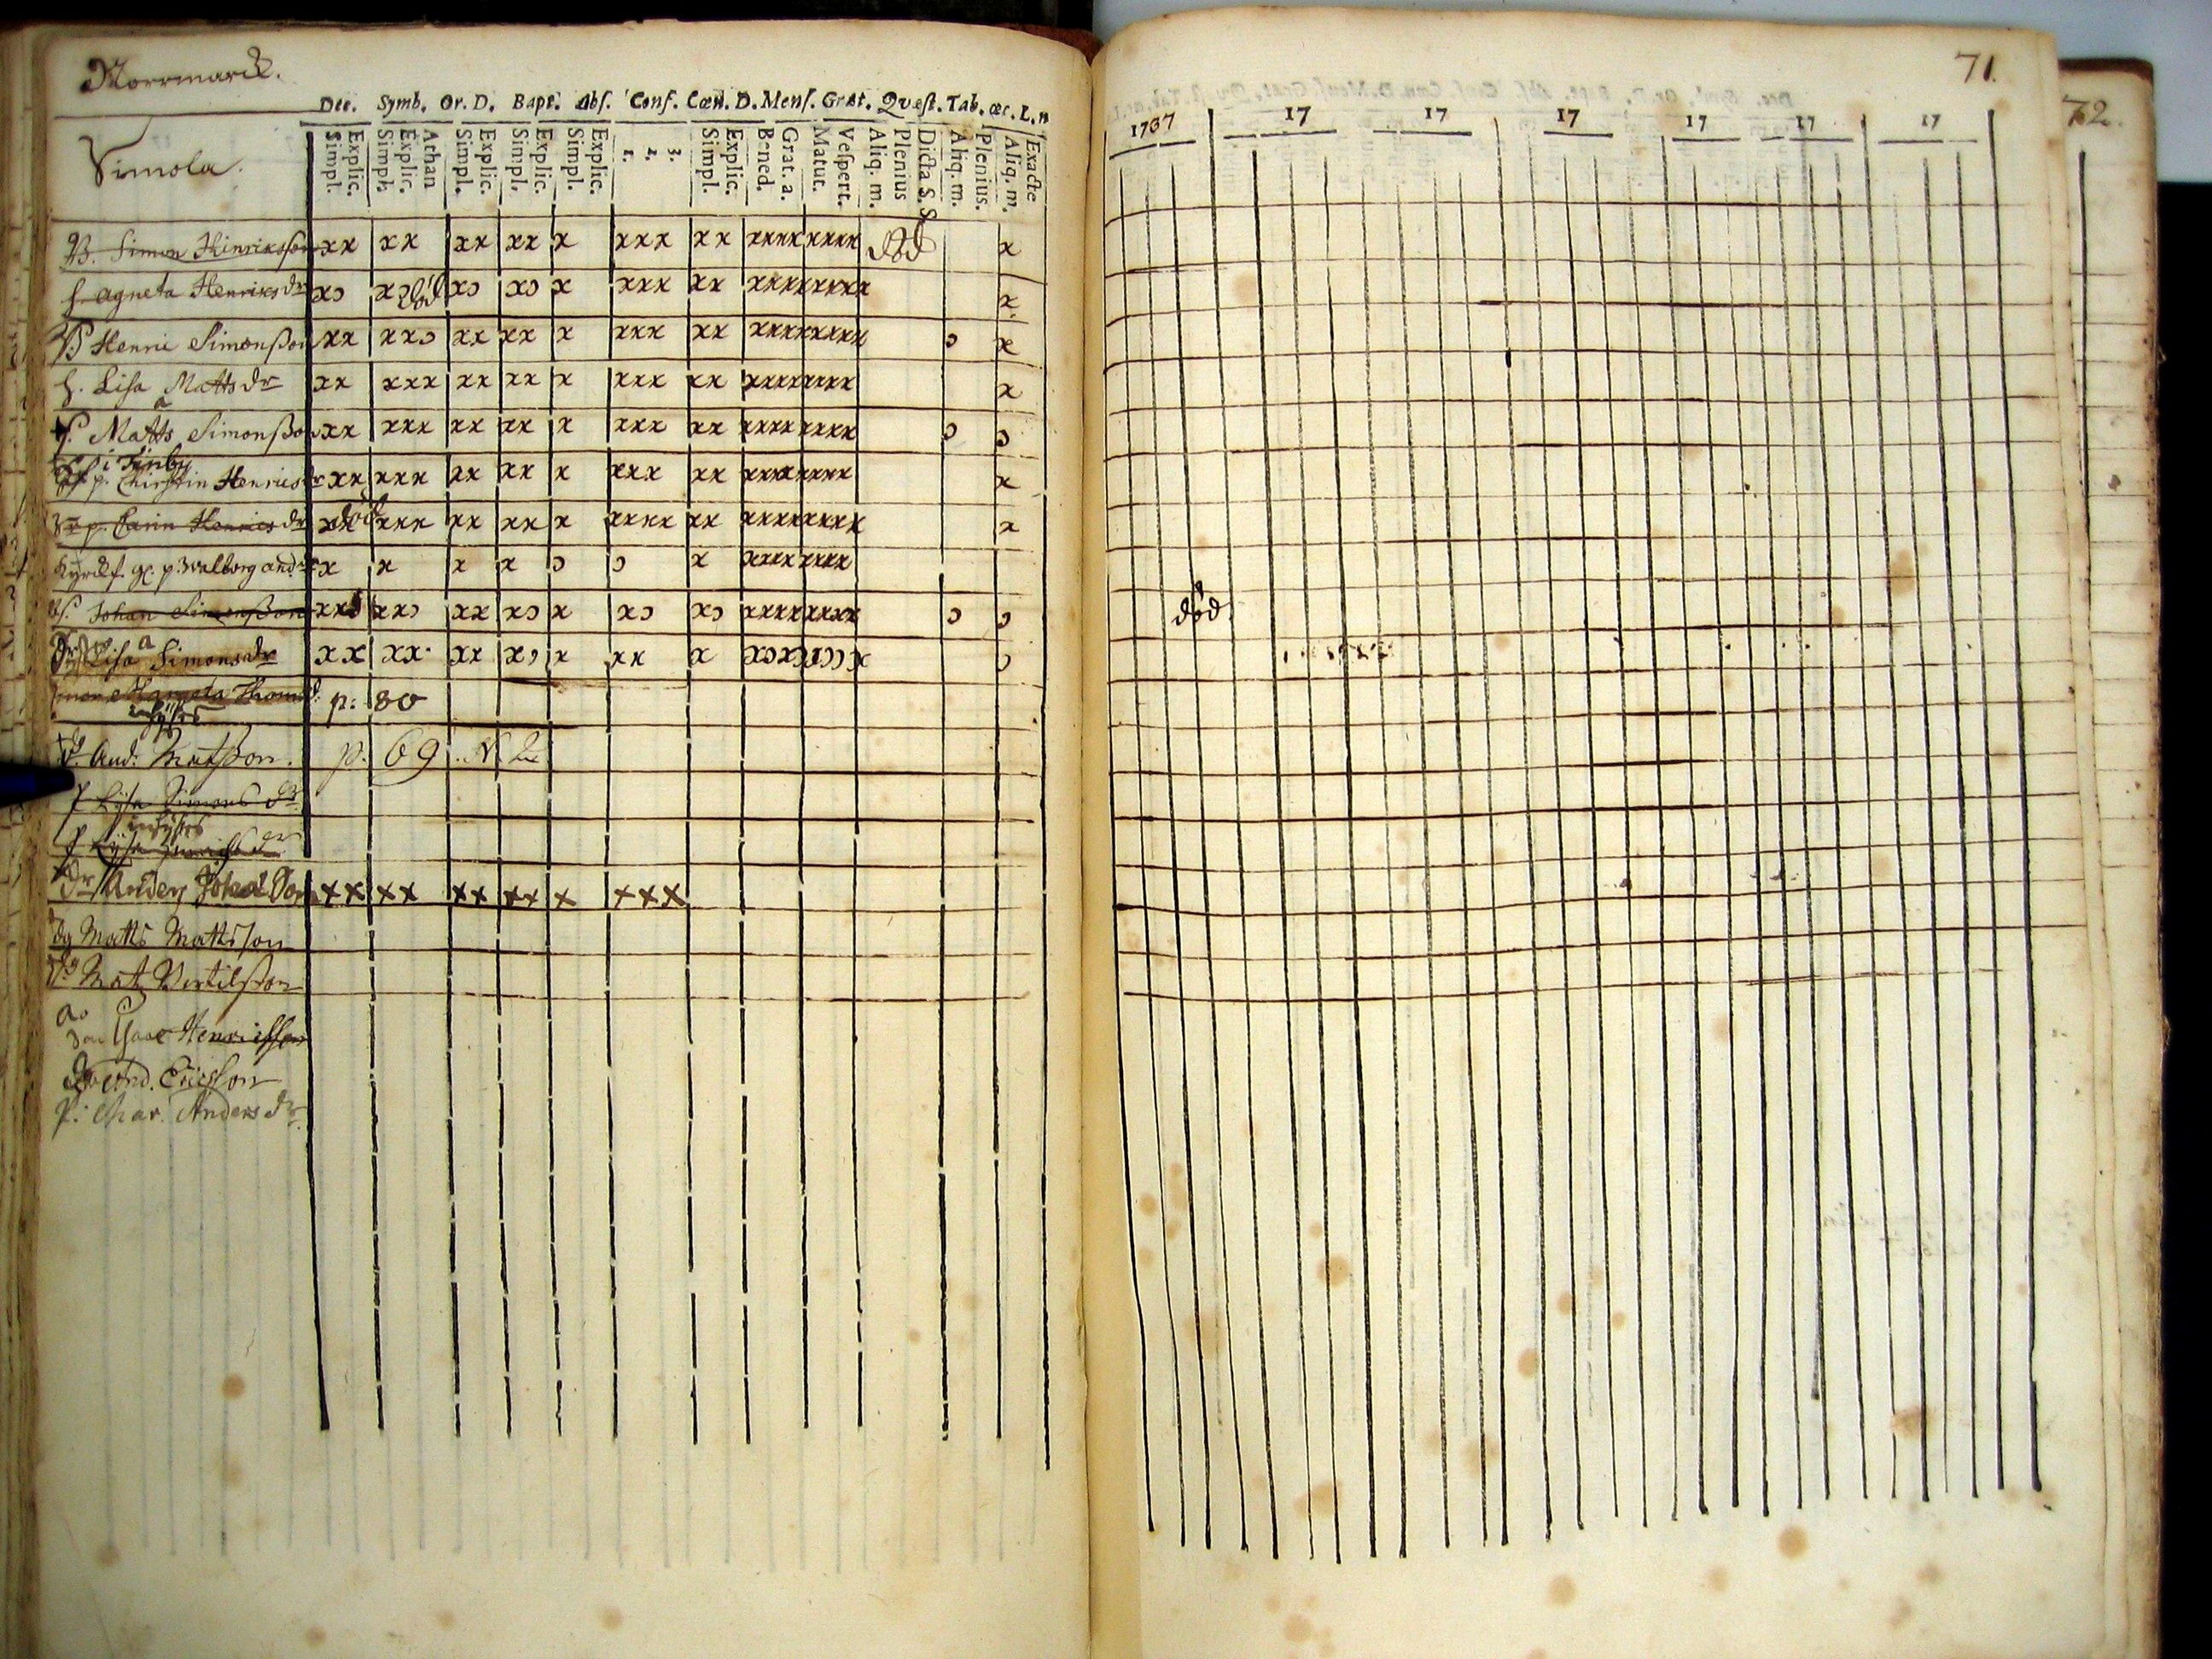 Norrmarck.
Dec. Symb. Or. D. Bapt. Abs. Conf. Cœn. D. Mens. Grat. Qvest. Tab. œc. L. n
Simola.
Simpl. Explic. Simpl. Explic. Athan Simpl. Explic. Simpl. Explic. Simpl. Explic. 1. 2. 3. Simpl. Explic. Bened. Grat. a. Matut. Vespert. Aliq. m. Plenius Dicta S. S Aliq. m. Plenius. Aliq. m. Exacte
B. Simon Hinricksson xx xx xx xx x xxx xx xxxx xxxx död x
h. Agneta Henriks dr xↄ x död xↄ xↄ x xxx xx xxxx xxxx x
B Henric Simonßon xx xxↄ xx xx x xxx xx xxxx xxxx ↄ x
h. Lisa Matts dr xx xxx xx xx x xxx xx xxxx xxxx x
a
Matts Simonßon xx xxx xx xx x xxx xx xxxx xxxx ↄ ↄ
i Finby
p. Chirstin Henrics dr xx xxx xx xx x xxx xx xxxx xxxx x
p. Carin Henrics dr xx död xxx xx xx x xxxx xx xxxx xxxx x
p. Walborg And. x x x x ↄ ↄ x xxxx xxxx
Johan Simonßon xx xxↄ xx xↄ x xↄ xↄ xxxx xxxx ↄ ↄ
a
Lisa Simonsdr xx xx xx xↄ x xx x ↄ
Margeta Thoms d. p: 80
And: Matßon. p. 69. N. 2
Lÿsa Simons dr
Lÿsa
Anders Johansson xx xx xx xx x xxx
dg Matts Mattsson
dg Mat Bertilßon
ao
Isaac Henricsson
And. Ericsson
P: Mar. Anders dr
71.
1737 17 17 17 17 17 17
död.
72.